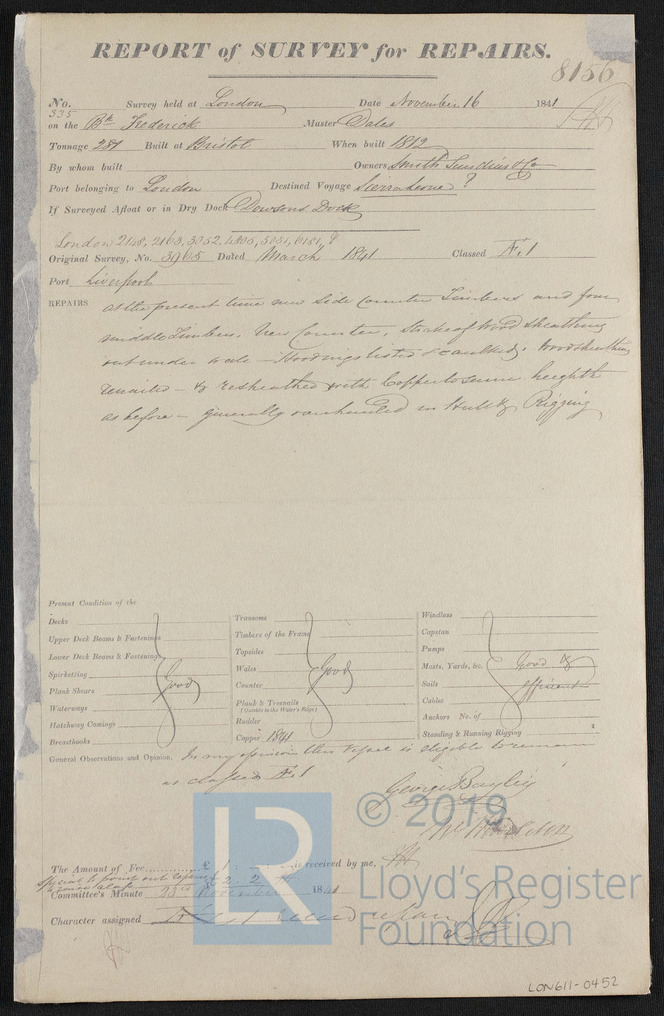 REPORT of SURVEY for REPAIRS.
8156
No. 335 Survey held at London Date November 16 1841
on the Bk Frederick Master Dales
Tonnage 281 Built at Bristol When built 1812
By whom built Owners Smith Sundius & Co
Port belonging to London Destined Voyage Sierra Leone ?
If Surveyed Afloat or in Dry Dock Dowsons Dock
London 2148, 2163, 3052,
Original Survey, No. 3965 Dated March 1841 Classed Æ.1
Port Liverpool
REPAIRS at the present time new side Counter Timbers and four
middle Timbers. New Counter, strake of wood sheathing
out under wale - Hoodings listed & caulked, woodsheathing
renailed - & resheathed with Copper to same heighth
as before - generally overhauled in Hull & Rigging
Present Condition of the
Decks
Upper Deck Beams & Fastenings
Lower Deck Beams & Fastenings
Spirketting
Plank Shears
Waterways
Hatchway Comings
Breasthooks
Good
Transoms
Timbers of the Frame
Topsides
Wales
Counter
Plank & Treenails
(Outside to the Water's Edge)
Rudder
Copper 1841
Good
Windlass
Capstan
Pumps
Masts, Yards, &c.
Sails
Cables
Anchors No. of
Standing & Running Rigging
Good &
efficient
General Observations and Opinion. In my opinion this Vessel is eligible to remain
as classed Æ.1
George Bayley
© 2019
The Amount of Fee £ 1 is received by me,
£ 2. 2
Committee's Minute 23rd November 1841
Character assigned
LR
Lloyd's Register
Foundation
LON611-0452